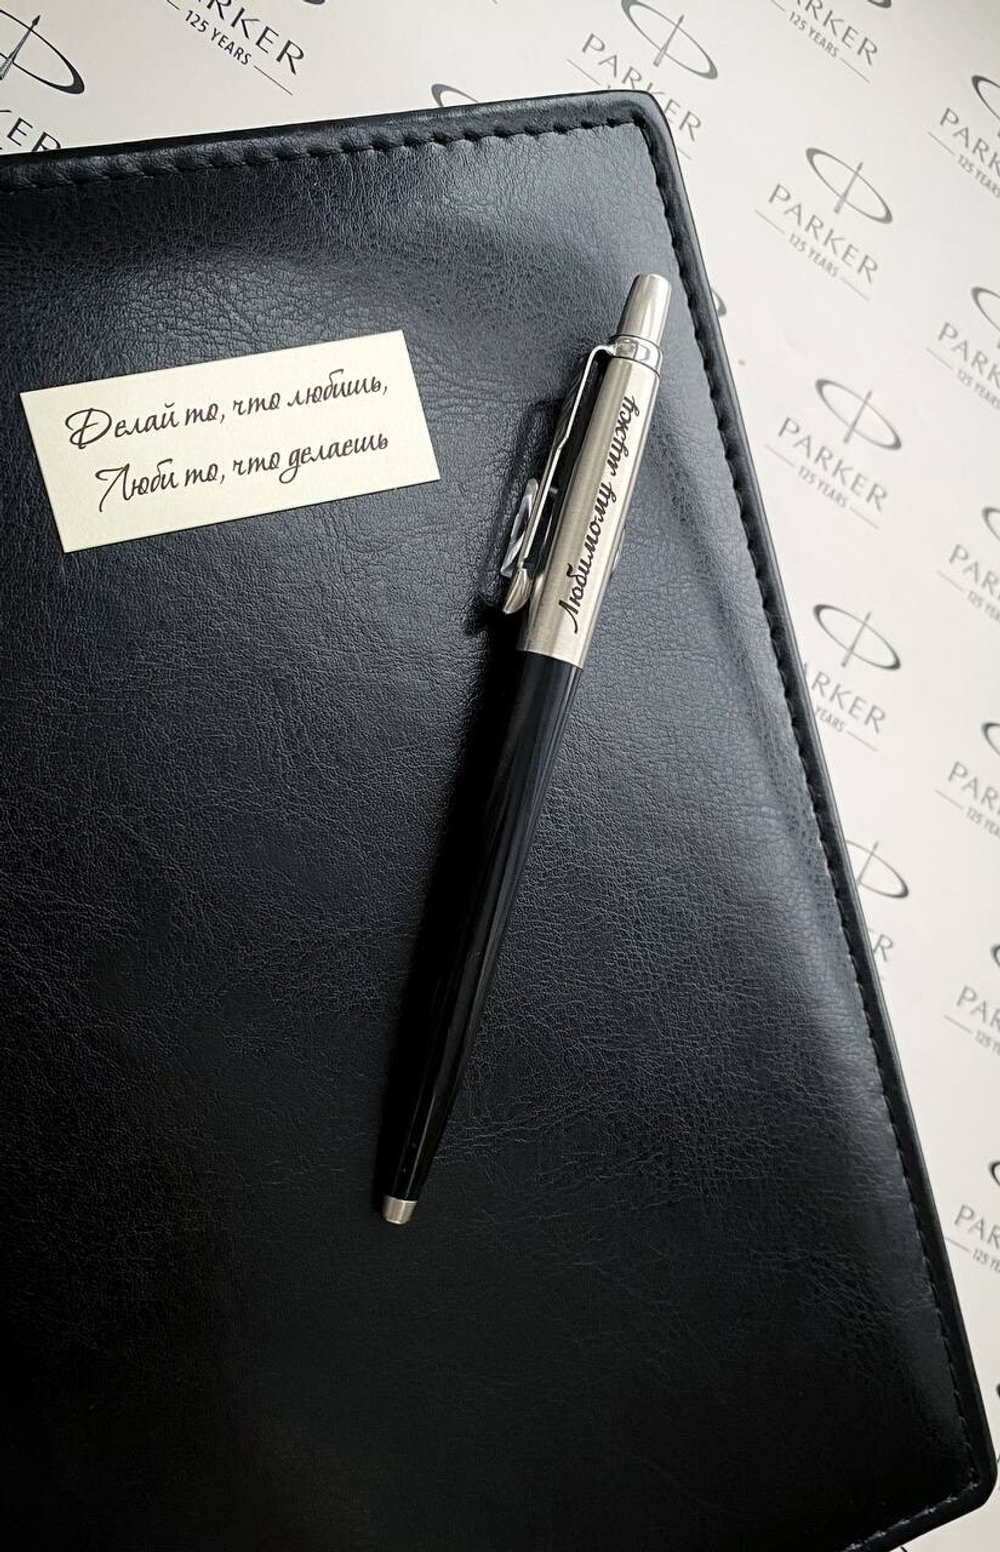 PARKER
125 YEARS
PARKER
125 YEARS
PARKER
PARKER
125 YEARS
PARKER
125 YEARS
PARKER
125 YEARS
PARKER
125 YEARS
Делай то, что любишь,
Люби то, что делаешь
Любимому мужу